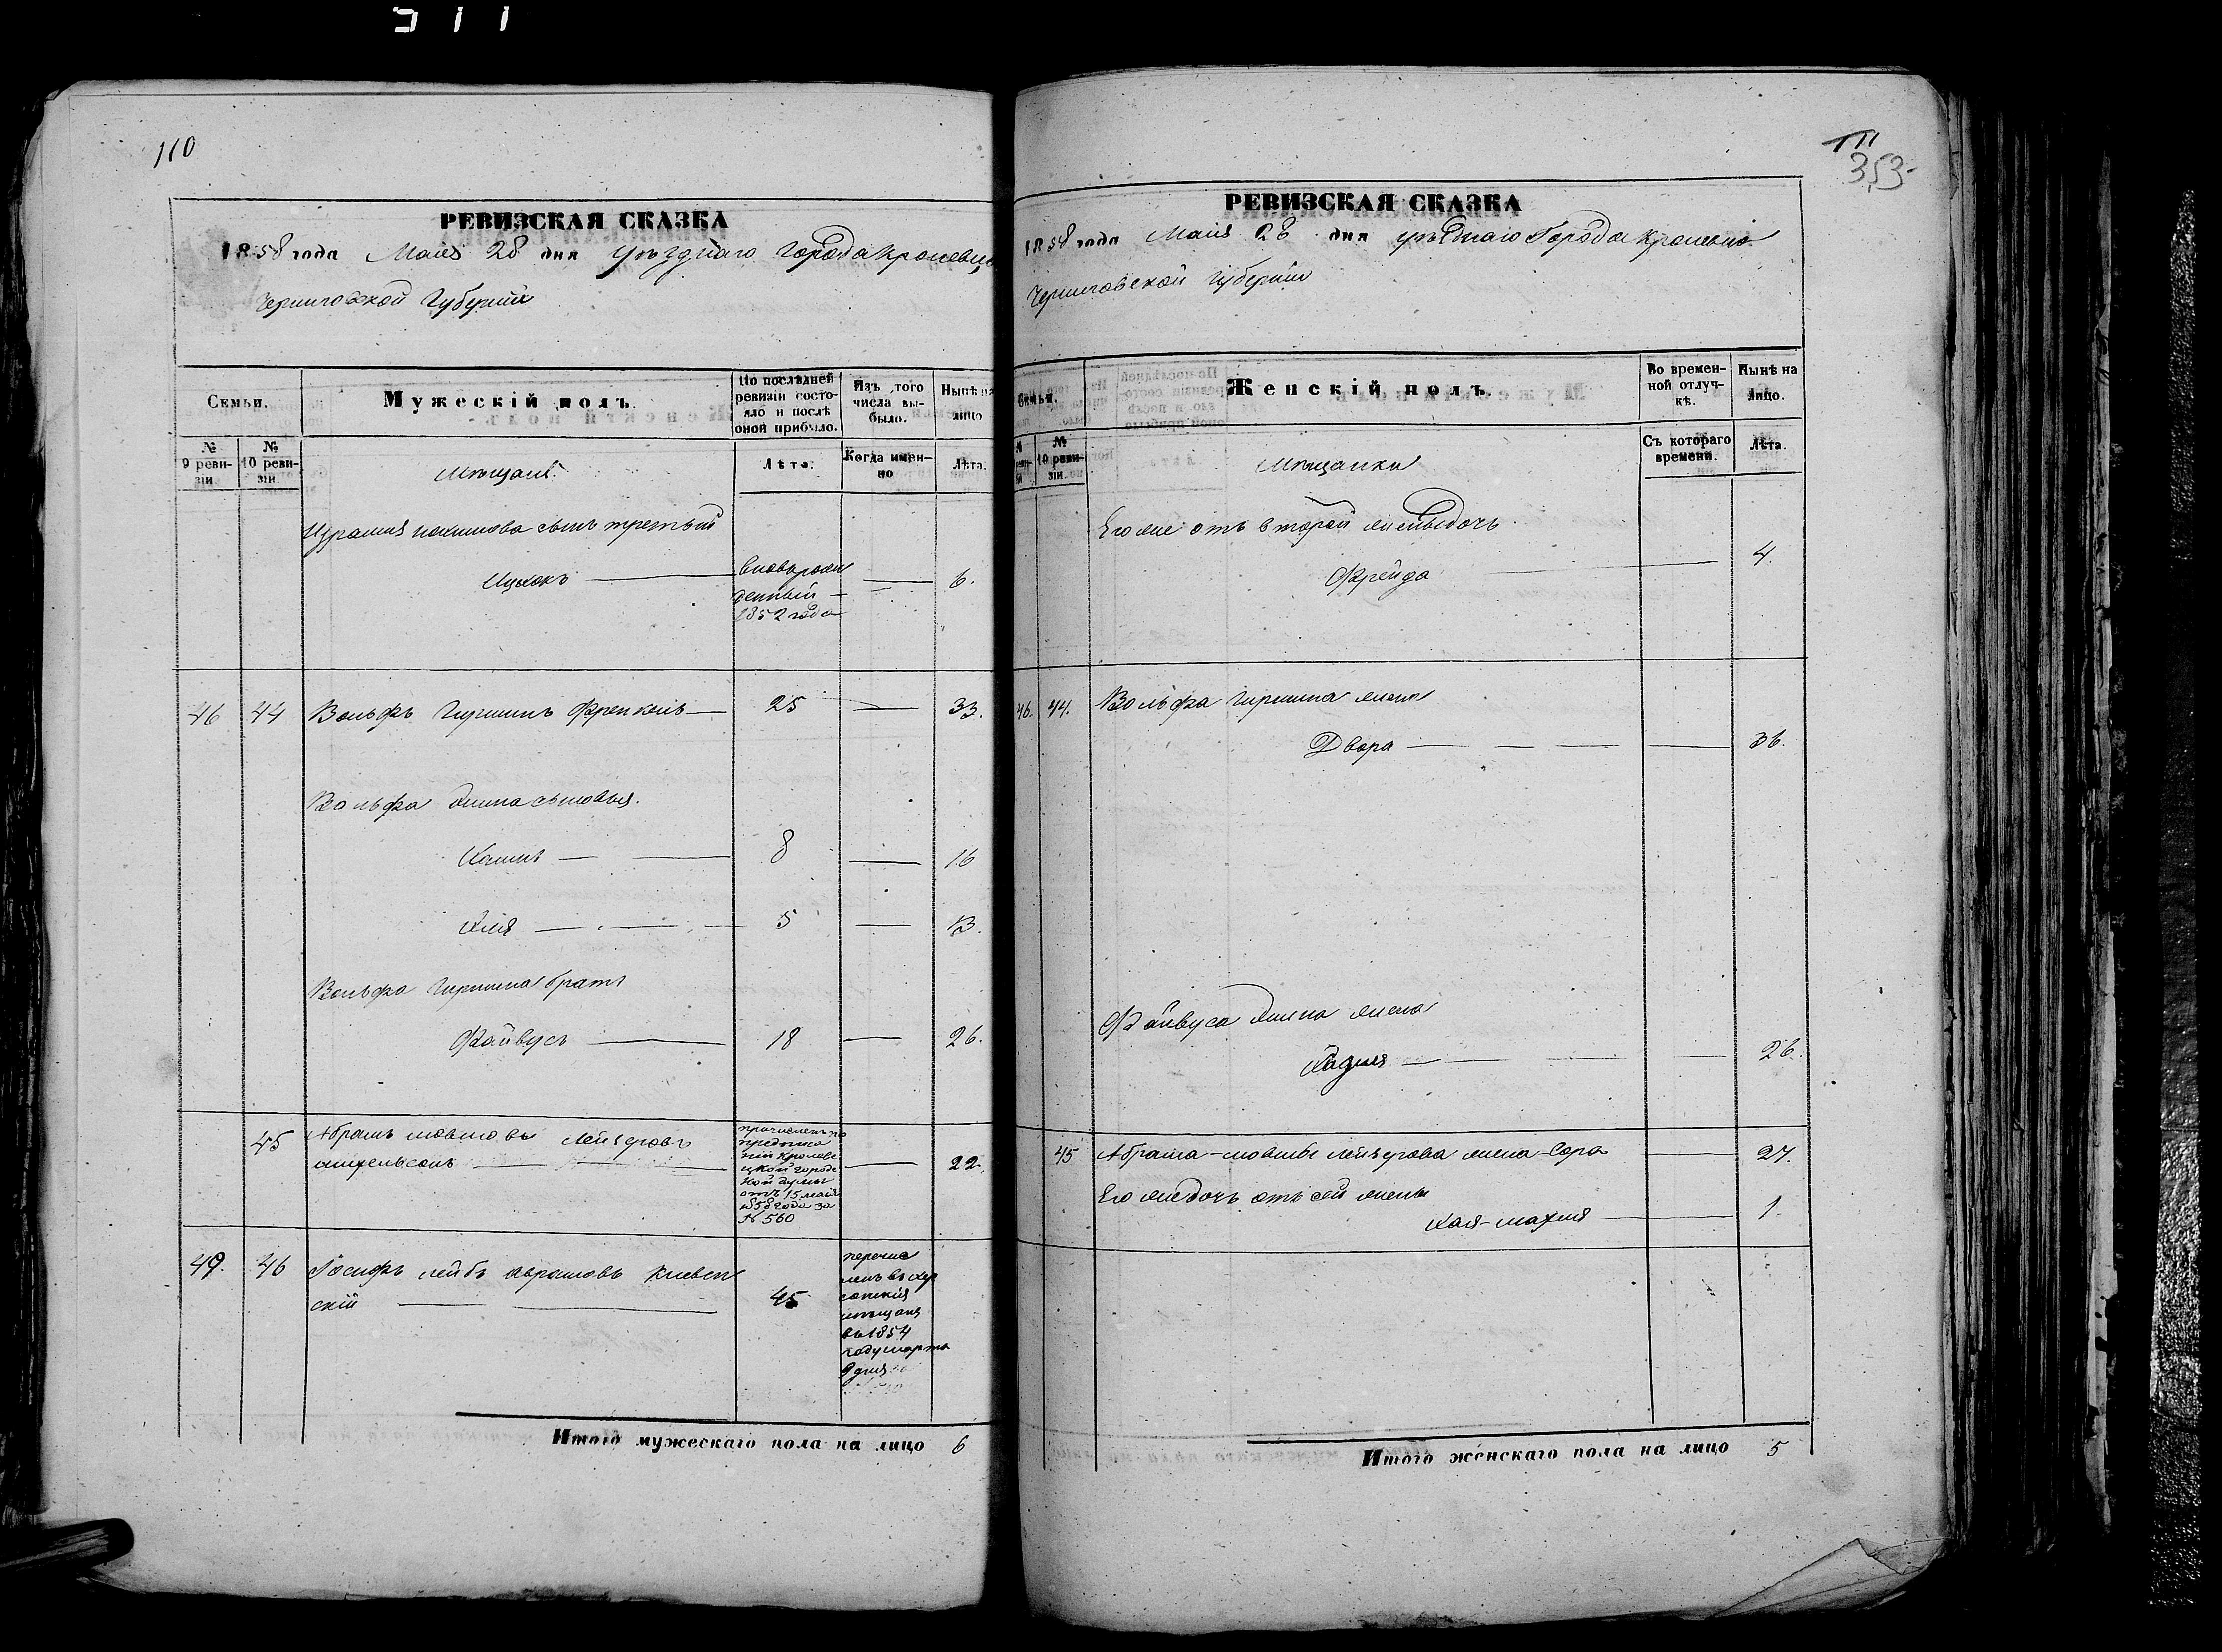 110
РЕВИЗСКАЯ СКАЗКА
1858 года Мая 28 дня уѣзднаго Города Кролевца
Черниговской Губерніи
Семьи.
Мужескій полъ.
По послѣдней ревизіи состояло и послѣ оной прибыло.
Изъ того числа выбыло.
Нынѣ на лицо
№ 9 ревизіи.
№ 10 ревизіи.
Мѣщане.
Лѣта.
Когда именно
Лѣта.
сынъ третьій
Ицкокъ
вноворожденный 1852 года
6.
46 44 Вольфъ Гиршинъ Френкель 25 33.
Вольфа Гиршина сыновья.
8 16
5 13.
Вольфа Гиршина братъ
Файвусъ 18 26.
45 Абрамъ Мовша Лейзеровъ
причисленъ по предписанію Кролевецкой городской думы отъ 15 мая 1858 года за № 560
22.
49. 46 Іосифъ Лейбъ Аврамовъ Киевскій
45
перечисленъ въ херсонскія мѣщаня въ 1854 году марта 9 дня
Итого мужескаго пола на лицо 6
353
РЕВИЗСКАЯ СКАЗКА
1858 года Мая 28 дня уѣзднаго Города Кролевца
Черниговской Губерніи
Семьи.
Женскій полъ.
Во временной отлучкѣ.
Нынѣ на лицо.
№ 10 ревизіи.
Мѣщанки
Съ котораго времени.
Лѣта.
Его же отъ второй жены дочь
Фрейда 4.
46. 44. Вольфа Гиршина жена
Двора 36.
Файвуса жена
26.
45 Абрама-Мовши Лейзерова жена Сора 27.
Его же дочь отъ сей жены
Хая- 1.
Итого женскаго пола на лицо 5